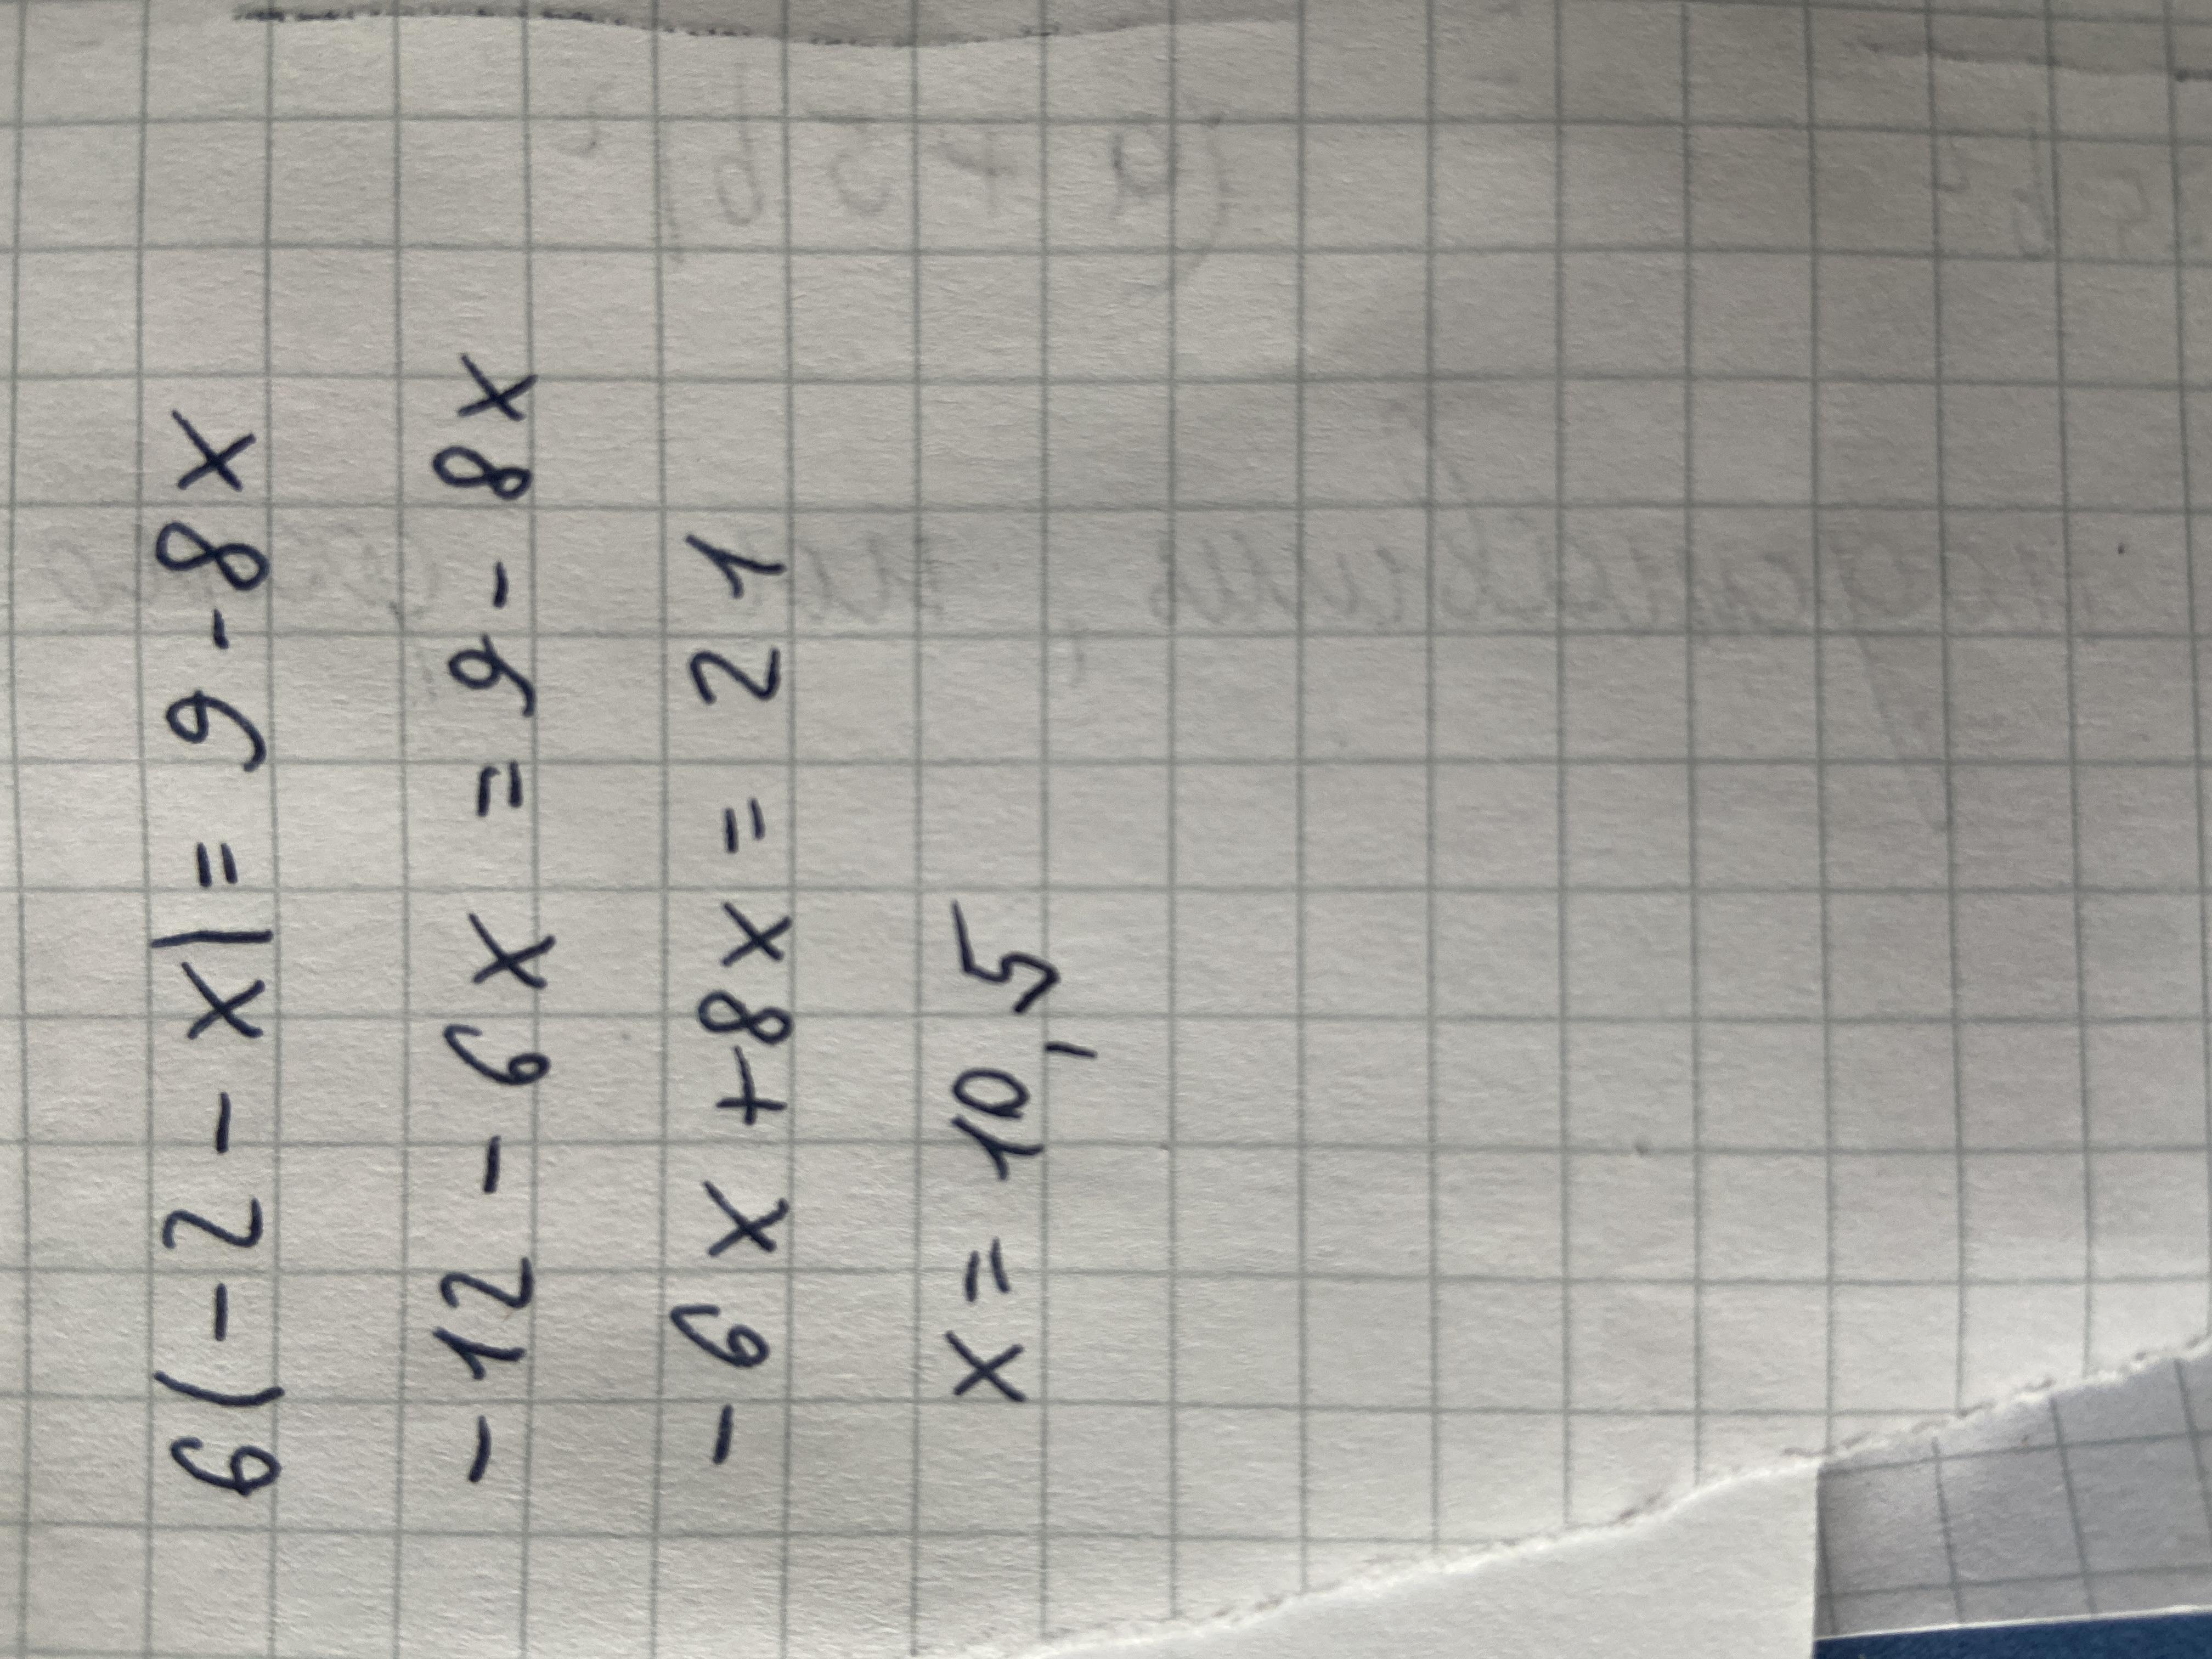 6(-2-x)=9-8x
-12-6x=9-8x
-6x+8x=21
x=10,5